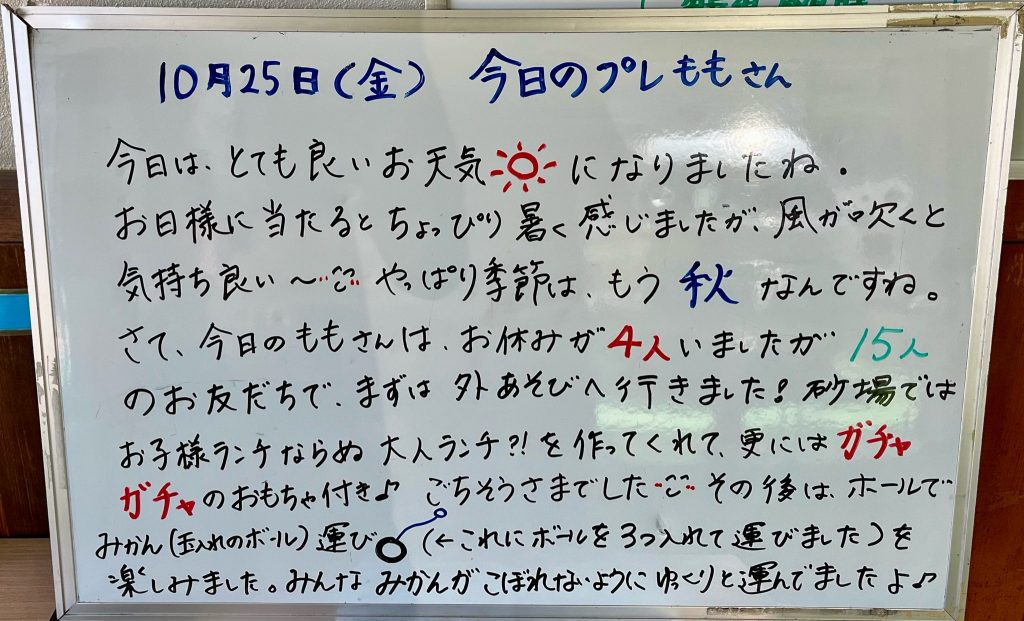 10月25日(金) 今日のプレももさん
今日は、とても良いお天気になりましたね。
お日様に当たるとちょっぴり暑く感じましたが、風が吹くと
気持ち良い〜 やっぱり季節は、もう 秋 なんですね。
さて、今日のももさんは、お休みが4人いましたが 15人
のお友だちで、まずは外あそびへ行きました!砂場では
お子様ランチならぬ 大人ランチ?!を作ってくれて、更にはガチャ
ガチャのおもちゃ付き♪ ごちそうさまでした その後は、ホールで
みかん(玉入れのボール)運び (←これにボールを3つ入れて運びました)を
楽しみました。みんなみかんがこぼれないようにゆっくりと運んでましたよ♪